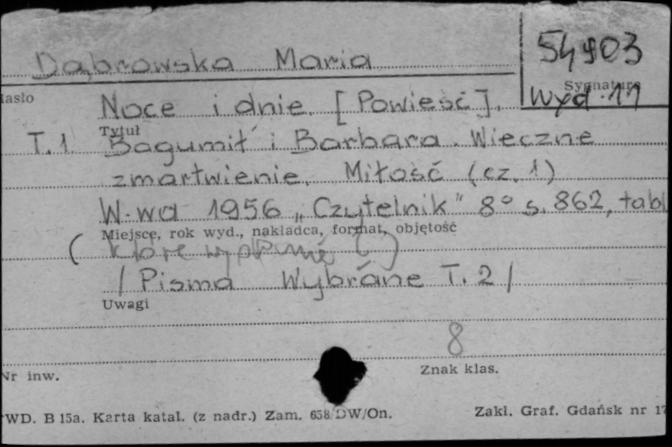 Dąbrowska Maria
54903
Sygnatura
Wyd. 11
Hasło
Noce i dnie. [Powieść].
Tytuł
T.1. Bogumił i Barbara. Wieczne
zmartwienie. Miłość (cz. 1)
W-wa 1956 „Czytelnik” 8° s. 862, tabl
Miejsce, rok wyd., nakładca, format, objętość
/Pisma Wybrane T. 2/
Uwagi
8
Nr inw.
Znak klas.
WD. B 15a. Karta katal. (z nadr.) Zam. 658/DW/On.
Zakł. Graf. Gdańsk nr 17